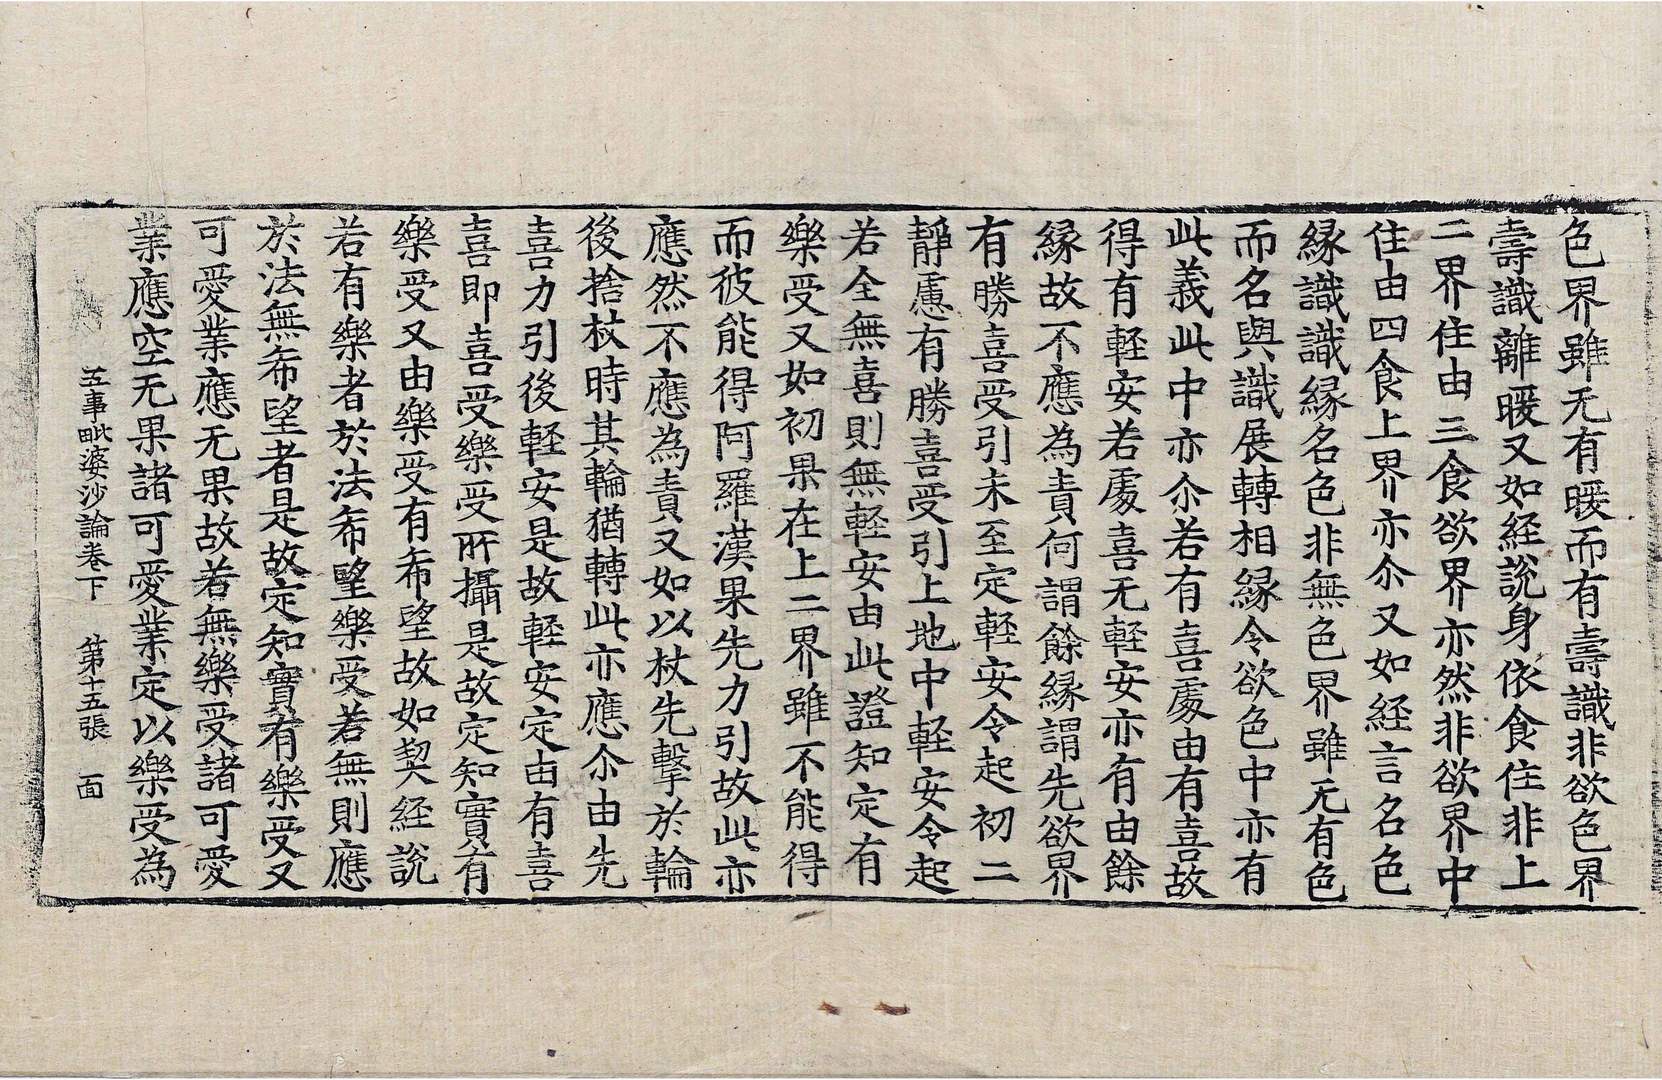 色界雖无有暖而有壽識非欲色界
壽識離暖又如經說身依食住非上
二界住由三食欲界亦然非欲界中
住由四食上界亦尒又如經言名色
緣識識緣名色非無色界雖无有色
而名與識展轉相緣令欲色中亦有
此義此中亦尒若有喜處由有喜故
得有輕安若處喜无輕安亦有由餘
緣故不應為責何謂餘緣謂先欲界
有勝喜受引未至定輕安令起初二
靜慮有勝喜受引上地中輕安令起
若全無喜則無輕安由此證知定有
樂受又如初果在上二界雖不能得
而彼能得阿羅漢果先力引故此亦
應然不應為責又如以杖先擊於輪
後捨杖時其輪猶轉此亦應尒由先
喜力引後輕安是故輕安定由有喜
喜即喜受樂受所攝是故定知實有
樂受又由樂受有希望故如契經說
若有樂者於法希望樂受若無則應
於法無希望者是故定知實有樂受又
可愛業應无果故若無樂受諸可愛
業應空无果諸可愛業定以樂受為
五事毗婆沙論卷下 第十五張 面